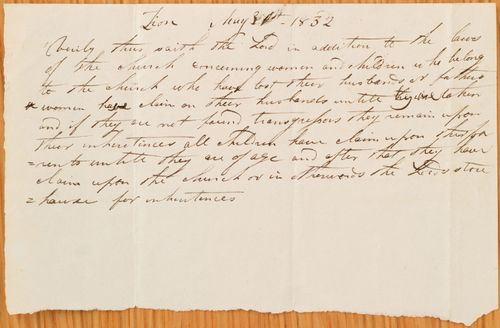 Zion May 31th - 1832
Verily thus saith the Lord in addition to the laws
of the church concerning women and children who belong
to the church who have lost their husbands or fathers
women have claim on their husbands untill they are taken
and if they are not found transgressors they remain upon
their inheritances all children have claim upon their pa
=rents untill they are of age and after that they have
claim upon the church or in otherwords the Lords store
=house for inheritances